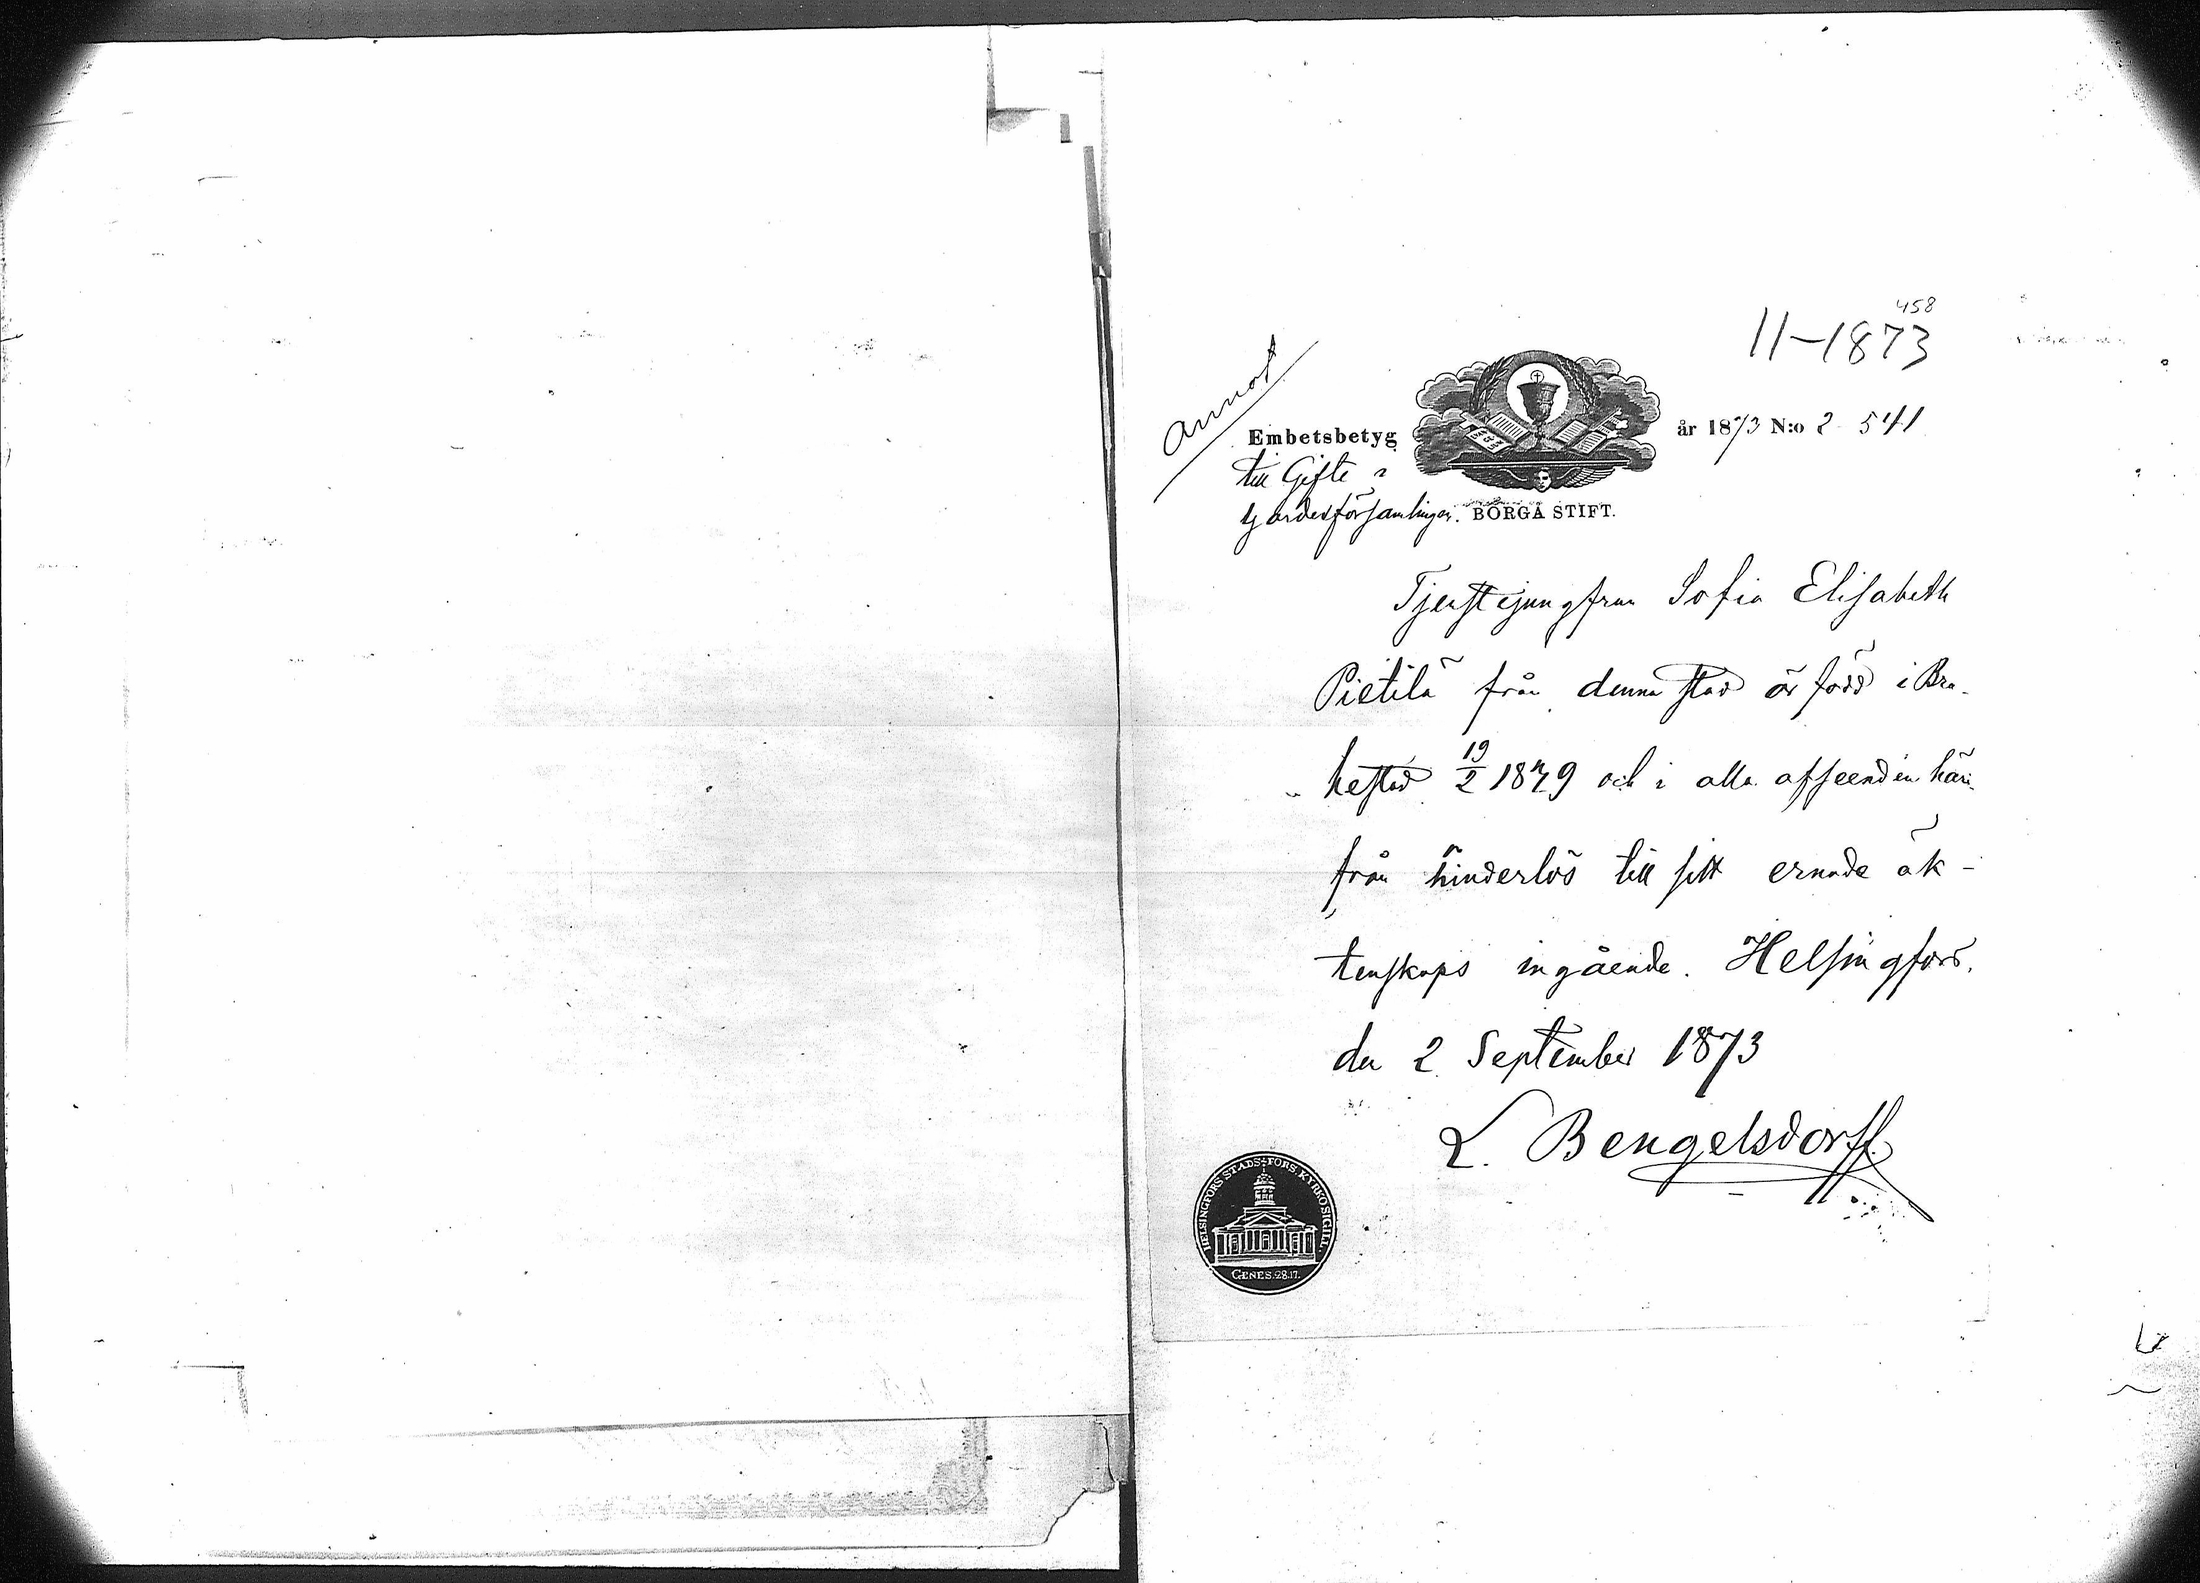 458
11-1873
annot
Embetsbetyg år 1873 N:o 2 541
till Gifte
Gardesförsamlingen. BORGÅ STIFT.
Tjenstejungfrun Sofia Elisabeth
Pietilä från denna stad är född i Bra-
hestad 19/2 1849 och i alla afseenden här-
från hinderlös till sitt ernade äk-
tenskaps ingående. Helsingfors,
den 2 September 1873
L. Bengelsdorff.
HELSINGFORS STADS-FÖRS. KYRKOSIGILL.
GENES. 28.17.